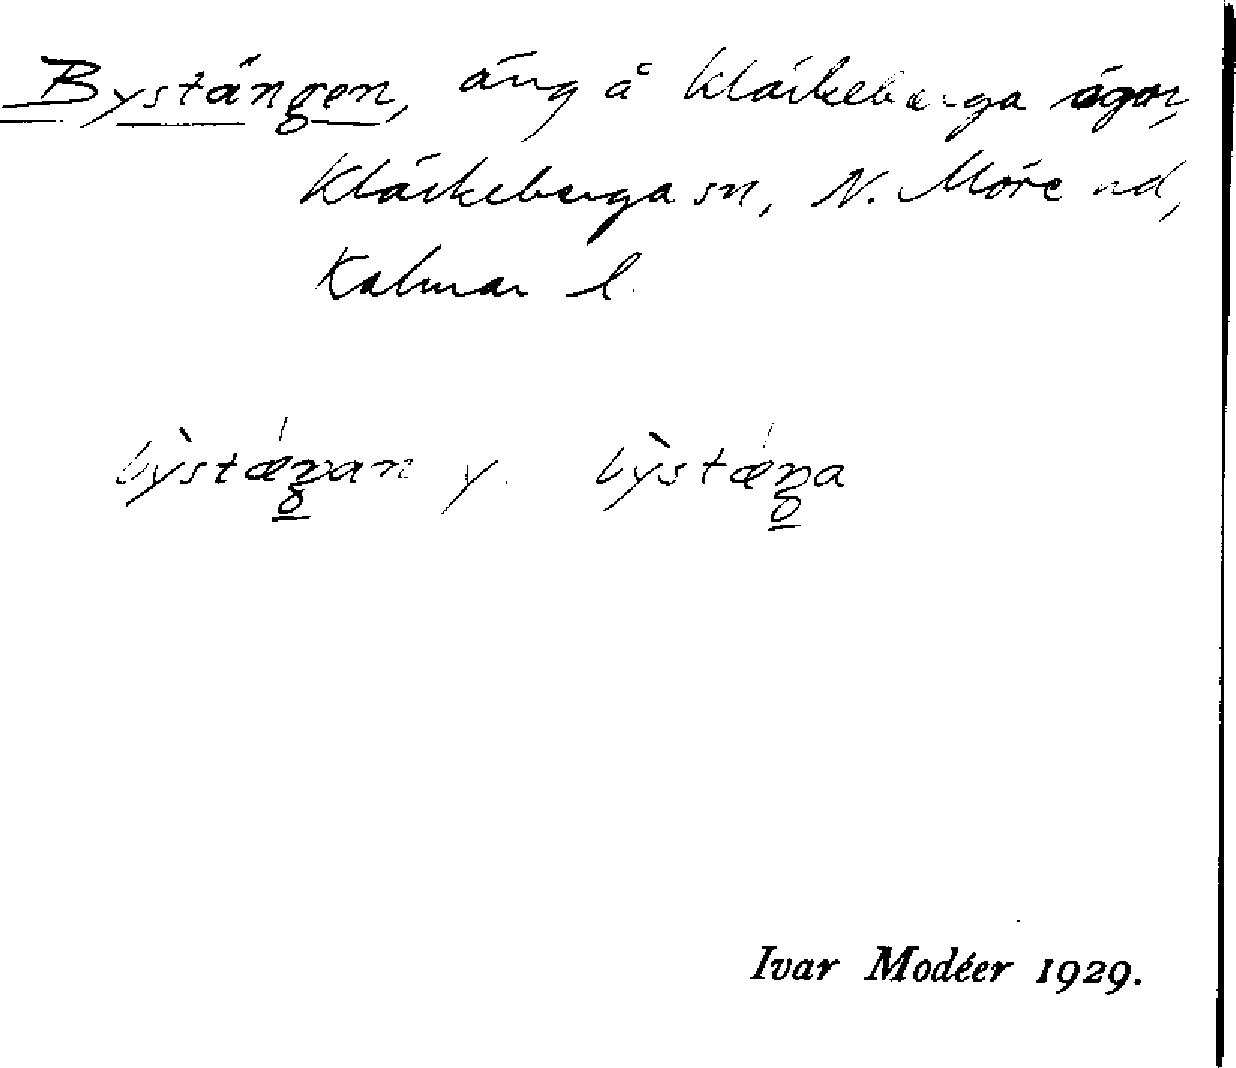 Bystängen, äng å Kläckeberga ägor,
Kläckeberga sn, N. Möre hd,
Kalmar l.
bỳstǽŋan y. bỳstǽŋa
Ivar Modéer 1929.